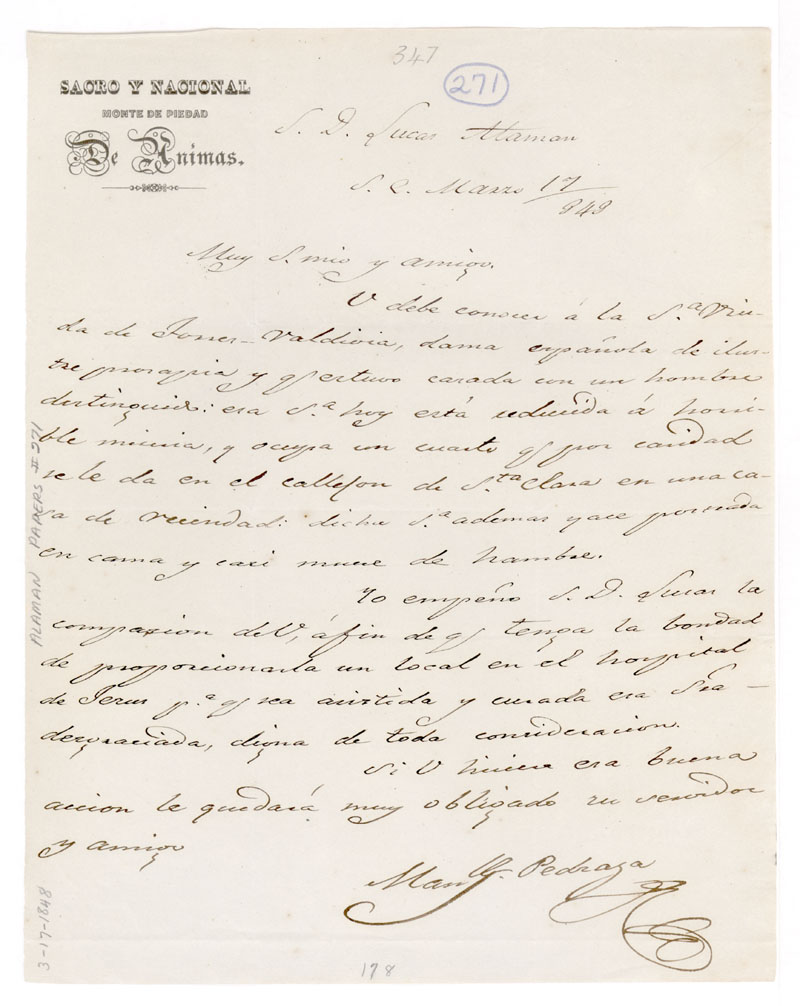 347
271
SACRO Y NACIONAL
MONTE DE PIEDAD
De Animas.
S. D. Lucas Alaman
S. C. Marzo 17/848
Muy S. mio y amigo.
V debe conocer á la S.ª Viu-
da de Torres-Valdivia, dama española de ilus-
tre prosapia y q estuvo casada con un hombre
distinguido: esa S.ª hoy está reducida á horri-
ble miseria, y ocupa un cuarto q por caridad
se le da en el callejon de S.ta Clara en una ca-
sa de vecindad: dicha S.ª ademas yace postrada
en cama y casi muere de hambre.
Yo empeño S. D. Lucas la
compasion de V, á fin de q tenga la bondad
de proporcionarla un local en el hospital
de Jesus p.ª q sea asistida y curada esa Sra
desgraciada, digna de toda consideracion.
Si V hiciere esa buena
accion le quedará muy obligado su servidor
y amigo
Man G. Pedraza
ALAMAN PAPERS #271
3-17-1848
178